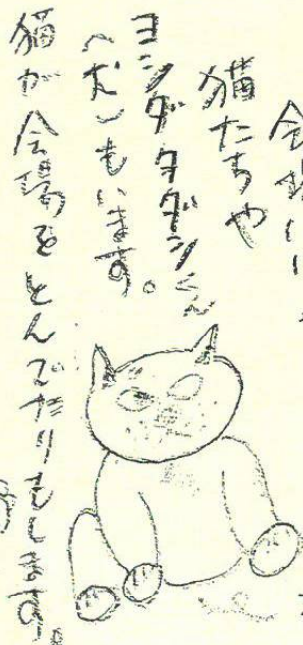 会場に
猫たちや
ヨシダタダシくん
(犬)もいます。
猫が会場をとんでたりもします。